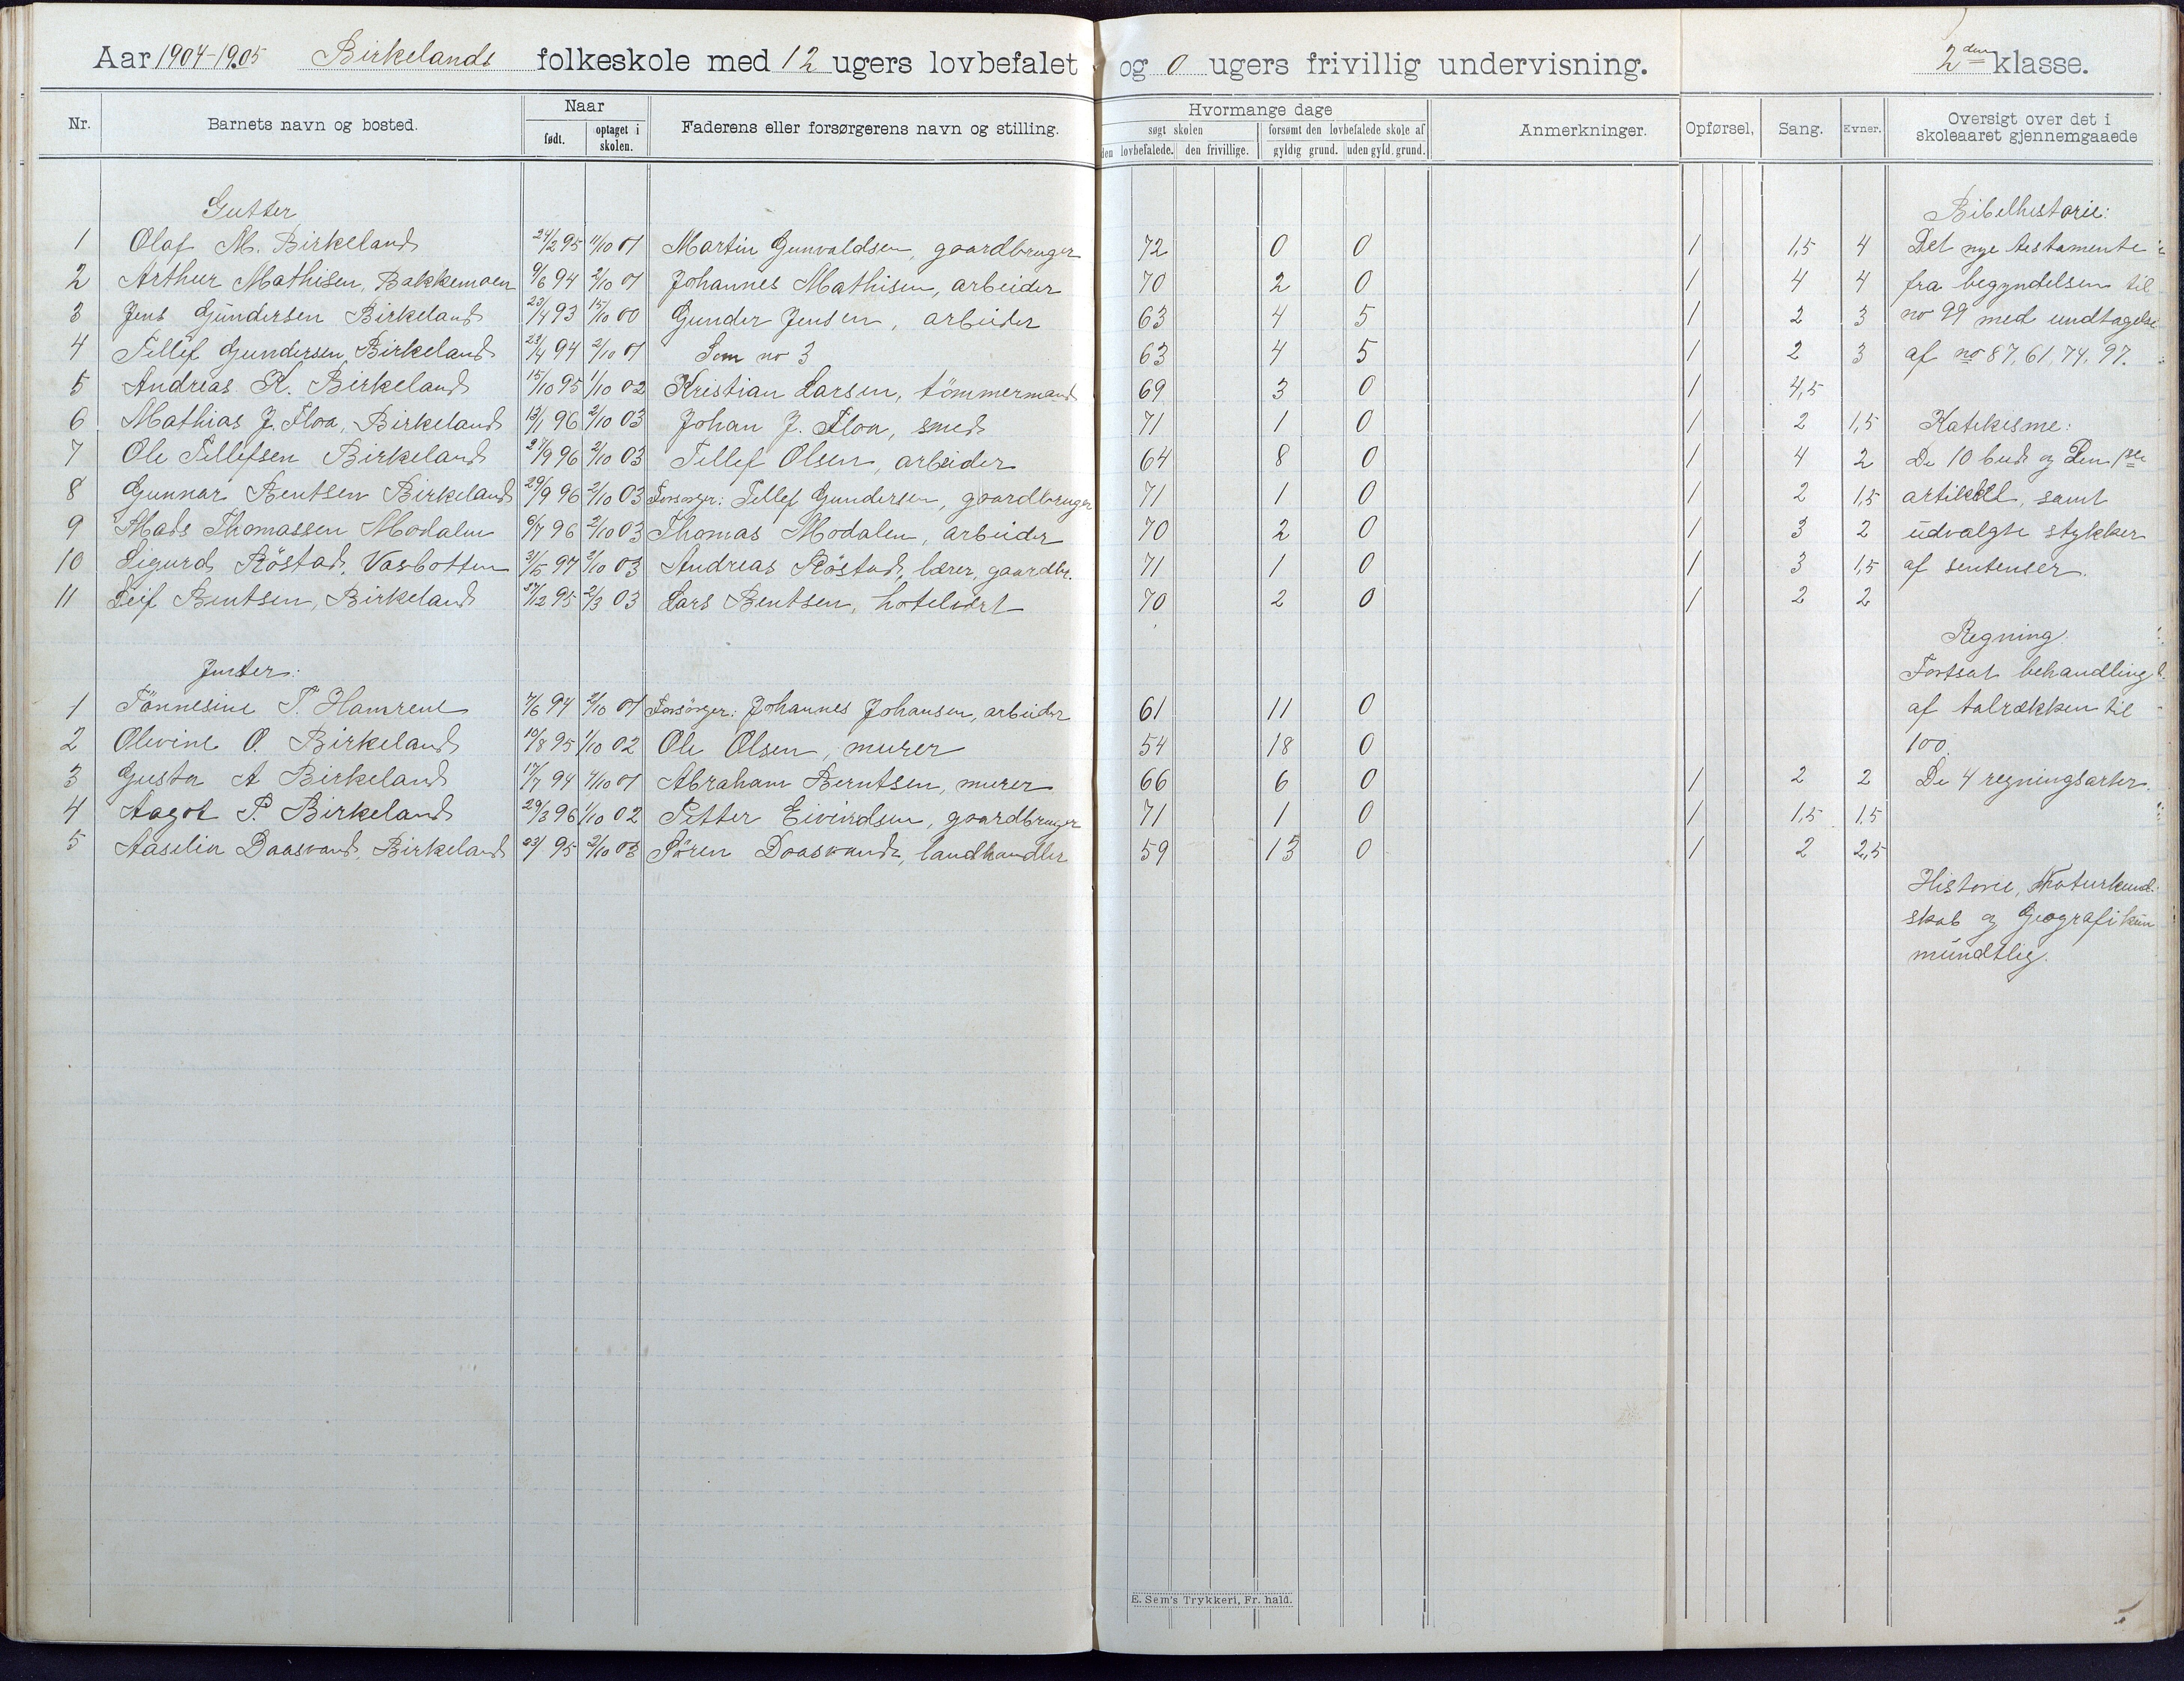 Aar 1904-1905 Birkelands folkeskole med 12 ugers lovbefalet og 0 ugers frivillig undervisning. 2den klasse.
Nr. Barnets navn og bosted. Naar født. optaget i skolen. Faderens eller forsørgerens navn og stilling. Hvormange dage søgt skolen den lovbefalede. den frivillige. forsømt den lovbefalede skole af gyldig grund. uden gyld. grund. Anmerkninger. Opførsel, Sang. Evner. Oversigt over det i skoleaaret gjennemgaaede
Gutter Bibelhistorie:
1 Olaf M. Birkeland 24/2 95 1/10 01 Martin Gunvaldsen, gaardbruger 72 0 0 1 1,5 4 Det nye testamente
2 Arthur Mathisen, Bakkemoen 9/6 94 2/10 01 Johannes Mathisen, arbeider 70 2 0 1 4 4 fra begyndelsen til
3 Jens Gundersen Birkeland 23/4 93 15/10 00 Gunder Jensen, arbeider 63 4 5 1 2 3 no 99 med undtagelse
4 Tellef Gundersen, Birkeland 23/4 94 2/10 01 Som no 3 63 4 5 1 2 3 af no 87, 61, 74, 97.
5 Andreas K. Birkeland 15/10 95 1/10 02 Kristian Larsen, tömmermand 69 3 0 1 4,5
6 Mathias J. Floa, Birkeland 13/1 96 2/10 03 Johan J. Floa, smed 71 1 0 1 2 1,5 Katekisme:
7 Ole Tellefsen Birkeland 21/9 96 2/10 03 Tellef Olsen, arbeider 64 8 0 1 4 2 De 10 bud og den 1ste
8 Gunnar Bentsen Birkeland 29/9 96 2/10 03 Forsørger: Tellef Gundersen, gaardbruger 71 1 0 1 2 1,5 artikkel, samt
9 Mads Thomassen Modalen 6/7 96 2/10 03 Thomas Modalen, arbeider 70 2 0 1 3 2 udvalgte stykker
10 Sigurd Röstad, Vasbotten 31/5 97 2/10 03 Andreas Röstad, lærer, gaardbr. 71 1 0 1 3 1,5 af sentenser.
11 Leif Bentsen, Birkeland 27/12 95 2/3 03 Lars Bentsen, hotelvært 70 2 0 1 2 2
Regning.
Jenter: Fortsat behandling
1 Tönnesine T. Hamrene 7/6 94 2/10 01 Forsörger: Johannes Johansen, arbeider 61 11 0 af talrækken til
2 Olevine O. Birkeland 10/8 95 1/10 02 Ole Olsen, murer 54 18 0 100.
3 Gusta A Birkeland 17/7 94 1/10 01 Abraham Berntsen, murer 66 6 0 1 2 2 De 4 regningsarter.
4 Aagot P. Birkeland 29/3 96 1/10 02 Petter Eivindsen, gaardbruger 71 1 0 1 1,5 1,5
5 Aaselia Daasvand, Birkeland 23/ 95 2/10 03 Sören Daasvand, landhandler 59 13 0 1 2 2,5
Historie, Naturkund-
skab og Geografi kun
mundtlig.
E. Sem's Trykkeri, Fr. hald.